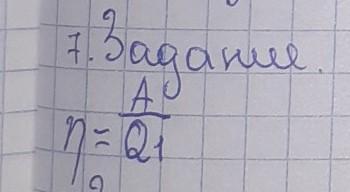 7. Задание.
η = A/Q1